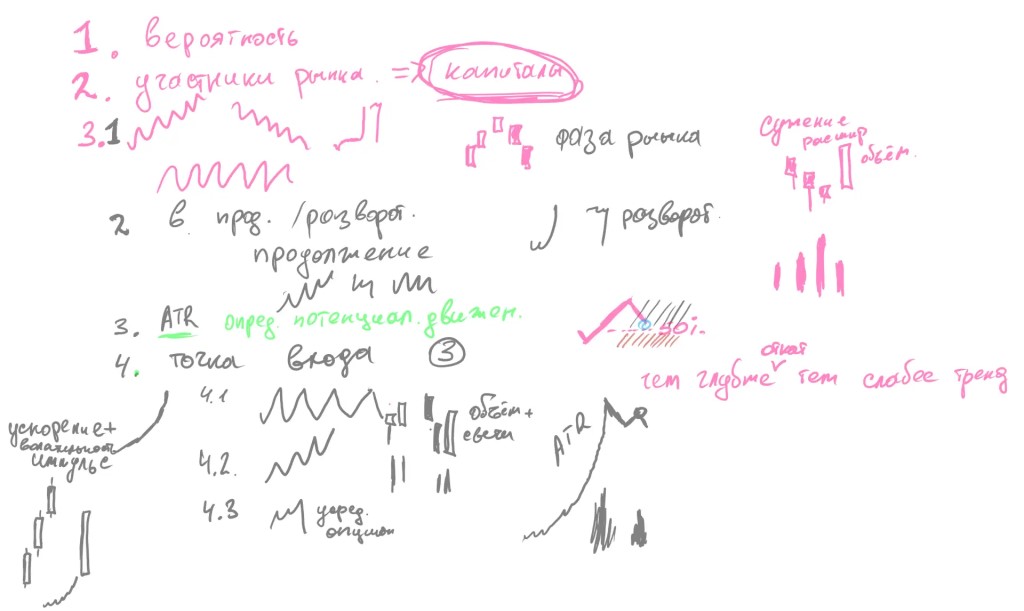 1. вероятность
2. участники рынка = капиталы
3.1
фаза рынка
Сужение
расшир
объём.
2 в прод. /разворот.
разворот.
продолжение
3. ATR опред. потенциал. движен.
50%
4. точка входа 3
откат
чем глубже тем слабее тренд
4.1
Объём +
свечи
ускорение +
волатильность
импульс
ATR
4.2.
4.3 усред.
опцион